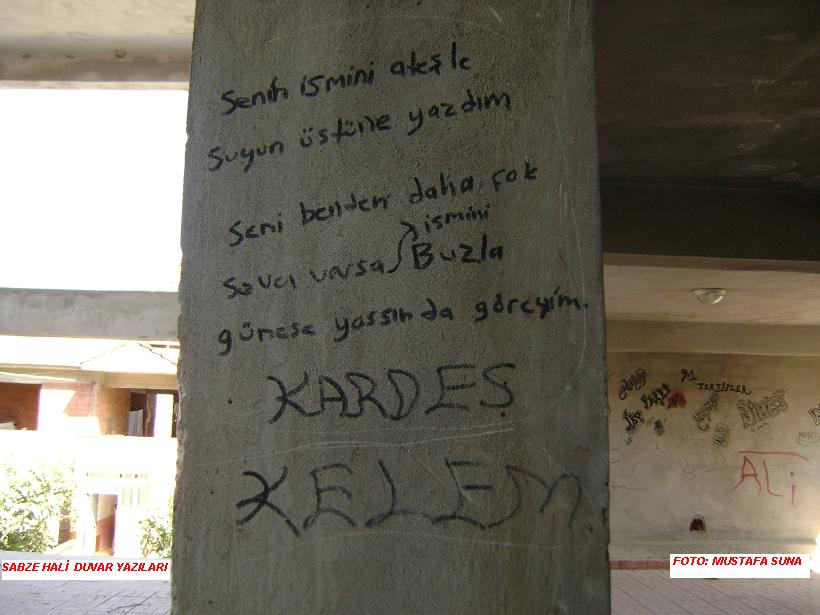 Senin ismini ateşle
Suyun üstüne yazdım
Seni benden daha çok
ismini
Sevci varsa Buzla
günese yassın da göreyim.
KARDEŞ
KELEM
91 TERZİLER
ALİ
SABZE HALİ DUVAR YAZILARI
FOTO: MUSTAFA SUNA